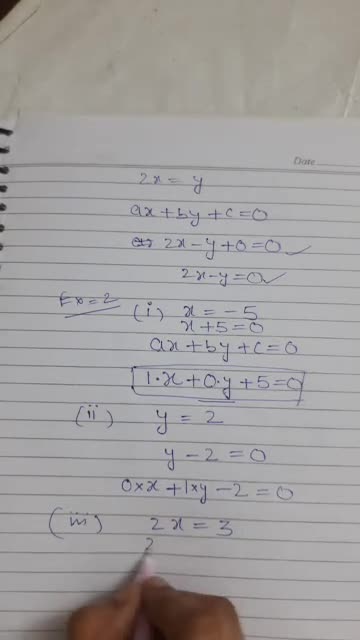 Date
2x = y
ax + by + c = 0
2x - y + 0 = 0 ✓
2x - y = 0 ✓
Ex = 2 (i) x = -5
x + 5 = 0
ax + by + c = 0
1·x + 0·y + 5 = 0
(ii) y = 2
y - 2 = 0
0×x + 1×y - 2 = 0
(iii) 2x = 3
2